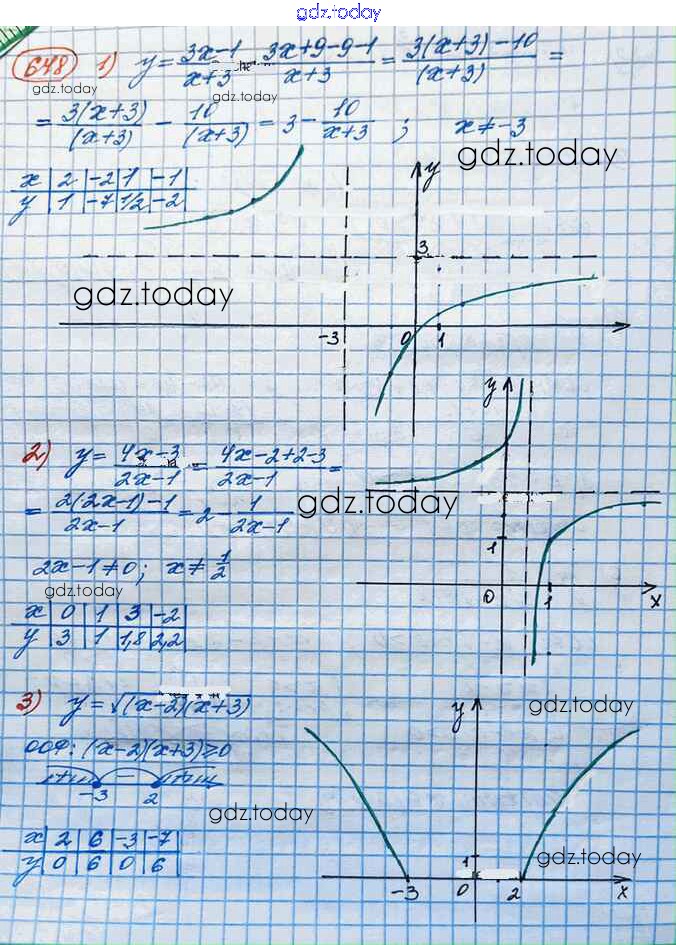 gdz.today
648 1) y = (3x-1)/(x+3) = (3x+9-9-1)/(x+3) = (3(x+3)-10)/(x+3) =
gdz.today gdz.today
= (3(x+3))/(x+3) - 10/(x+3) = 3 - 10/(x+3) ; x ≠ -3
gdz.today
x | 2 | -2 | 1 | -1
y | 1 | -7 | 1/2 | -2
y
3
gdz.today
-3 0 1
2) y = (4x-3)/(2x-1) = (4x-2+2-3)/(2x-1) =
= (2(2x-1)-1)/(2x-1) = 2 - 1/(2x-1)
gdz.today
2x-1≠0; x ≠ 1/2
gdz.today
x | 0 | 1 | 3 | -2
y | 3 | 1 | 1,8 | 2,2
y
1
0 1 x
3) y = √(x-2)(x+3)
ООФ: (x-2)(x+3) ≥ 0
+ − +
-3 2
gdz.today
x | 2 | 6 | -3 | -7
y | 0 | 6 | 0 | 6
y
gdz.today
1
gdz.today
-3 0 2 x